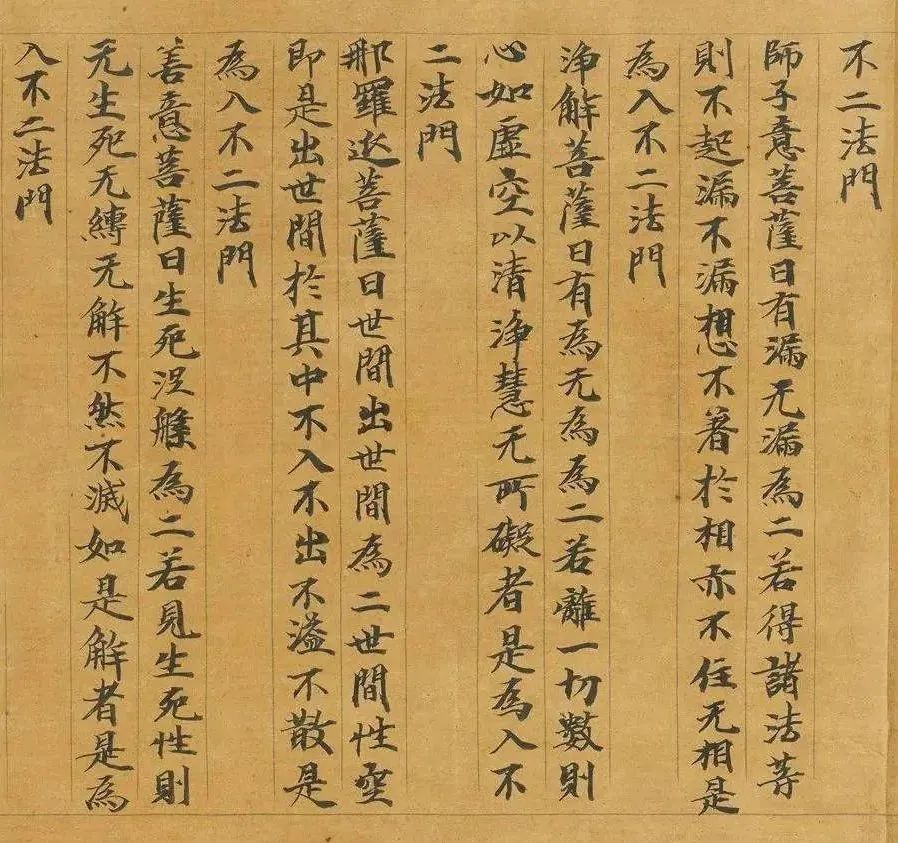 不二法門
師子意菩薩曰有漏无漏為二若得諸法等
則不起漏不漏想不著於相亦不住无相是
為入不二法門
淨解菩薩曰有為无為為二若離一切數則
心如虛空以清淨慧无所礙者是為入不
二法門
那羅延菩薩曰世間出世間為二世間性空
即是出世間於其中不入不出不溢不散是
為入不二法門
善意菩薩曰生死涅槃為二若見生死性則
无生死无縛无解不然不滅如是解者是為
入不二法門